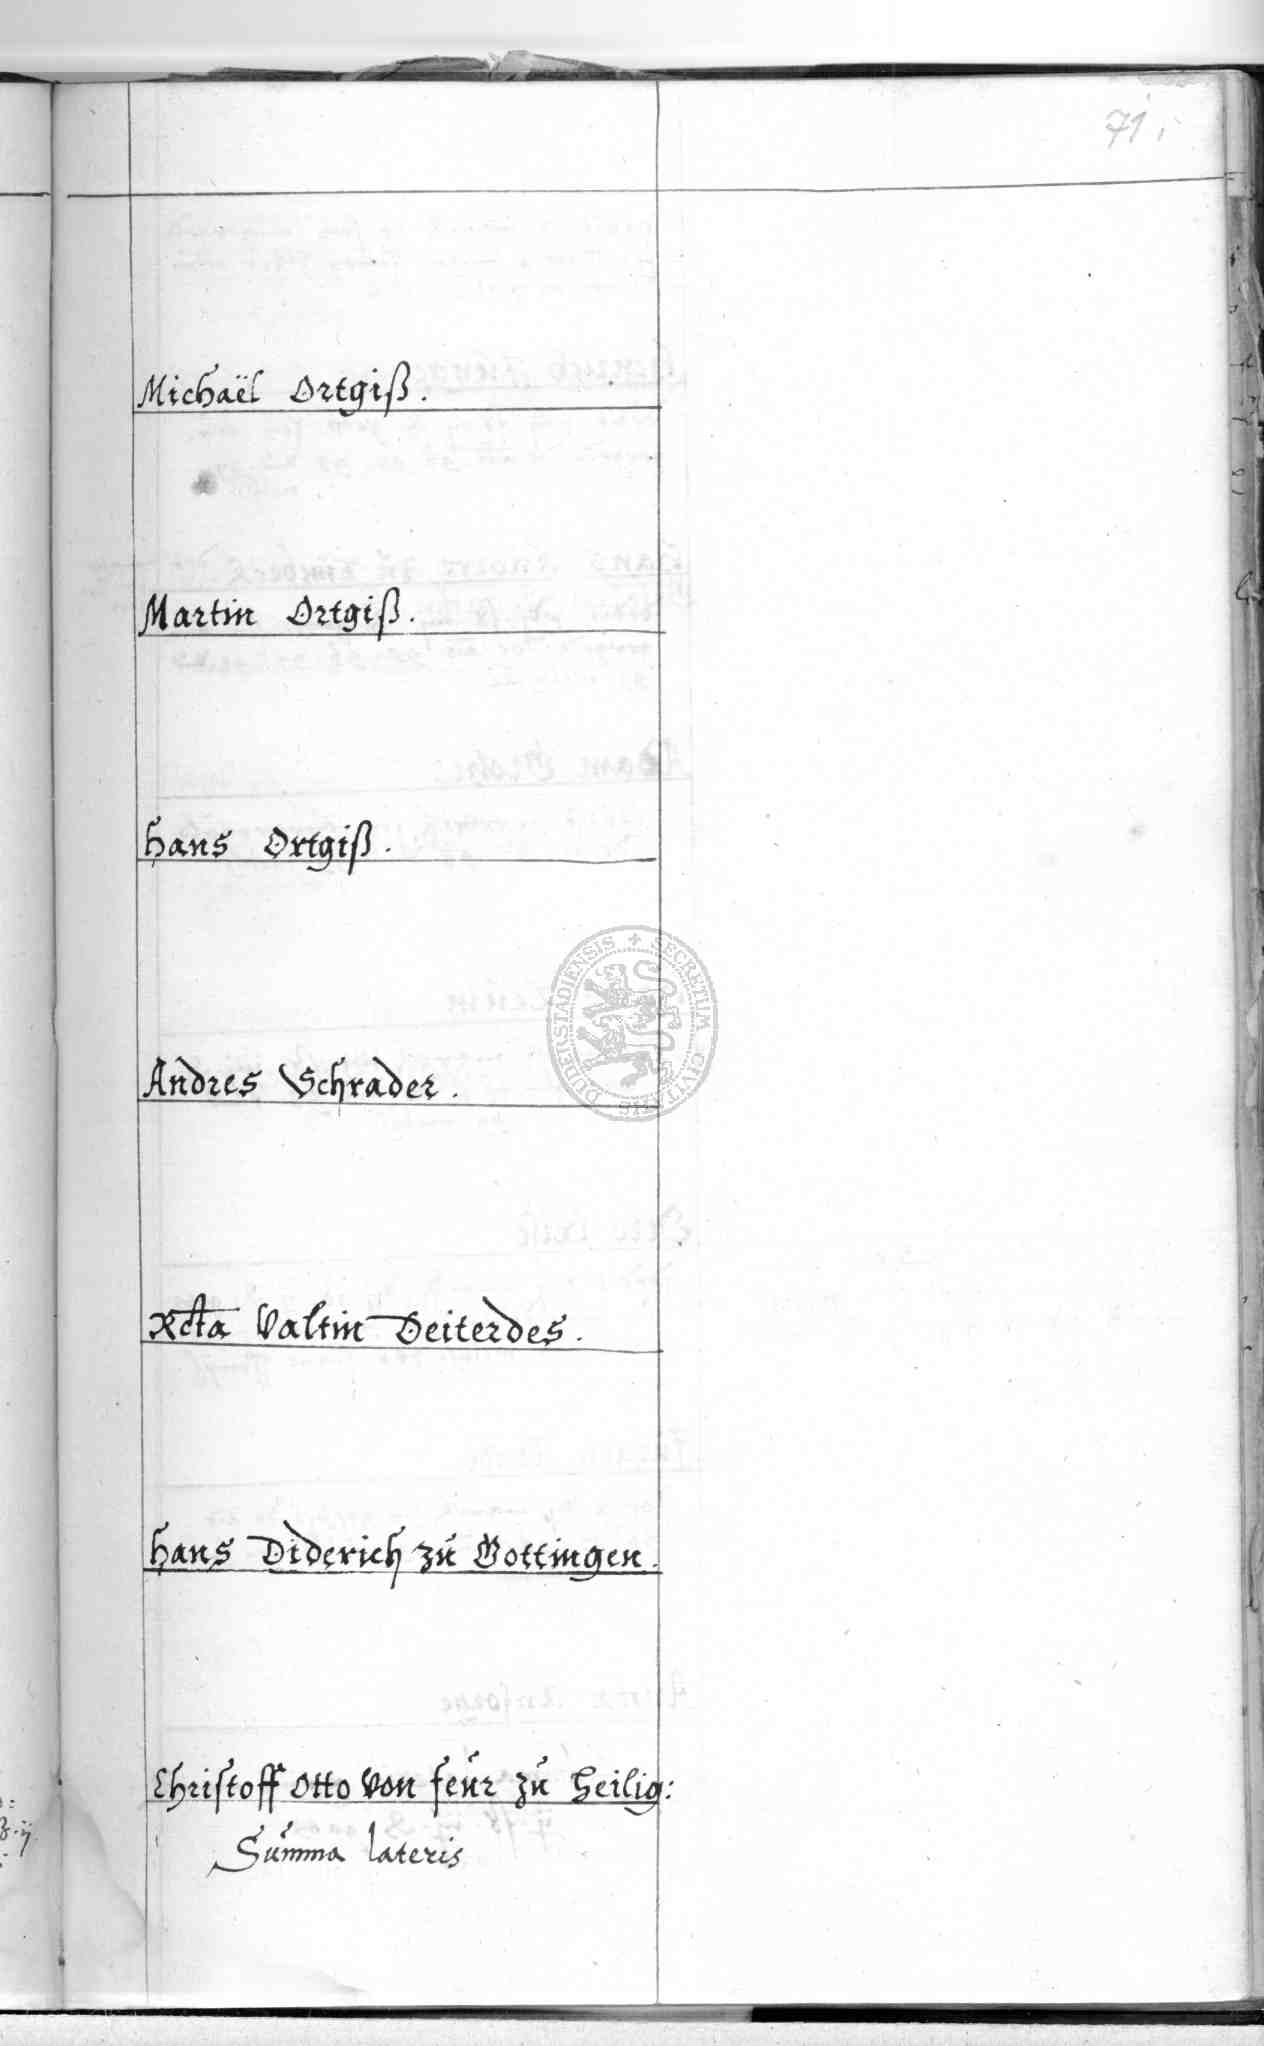 71.
Michaël Ortgiß.
Martin Ortgiß.
Hans Ortgiß.
Andres Schrader.
Rcta Valtin Deiterdes.
Hans Diderich zú Gottingen.
Christoff Otto Von feúr zú Heilig:
Súmma lateris
SECRETUM CIVITATIS DUDERSTADIENSIS